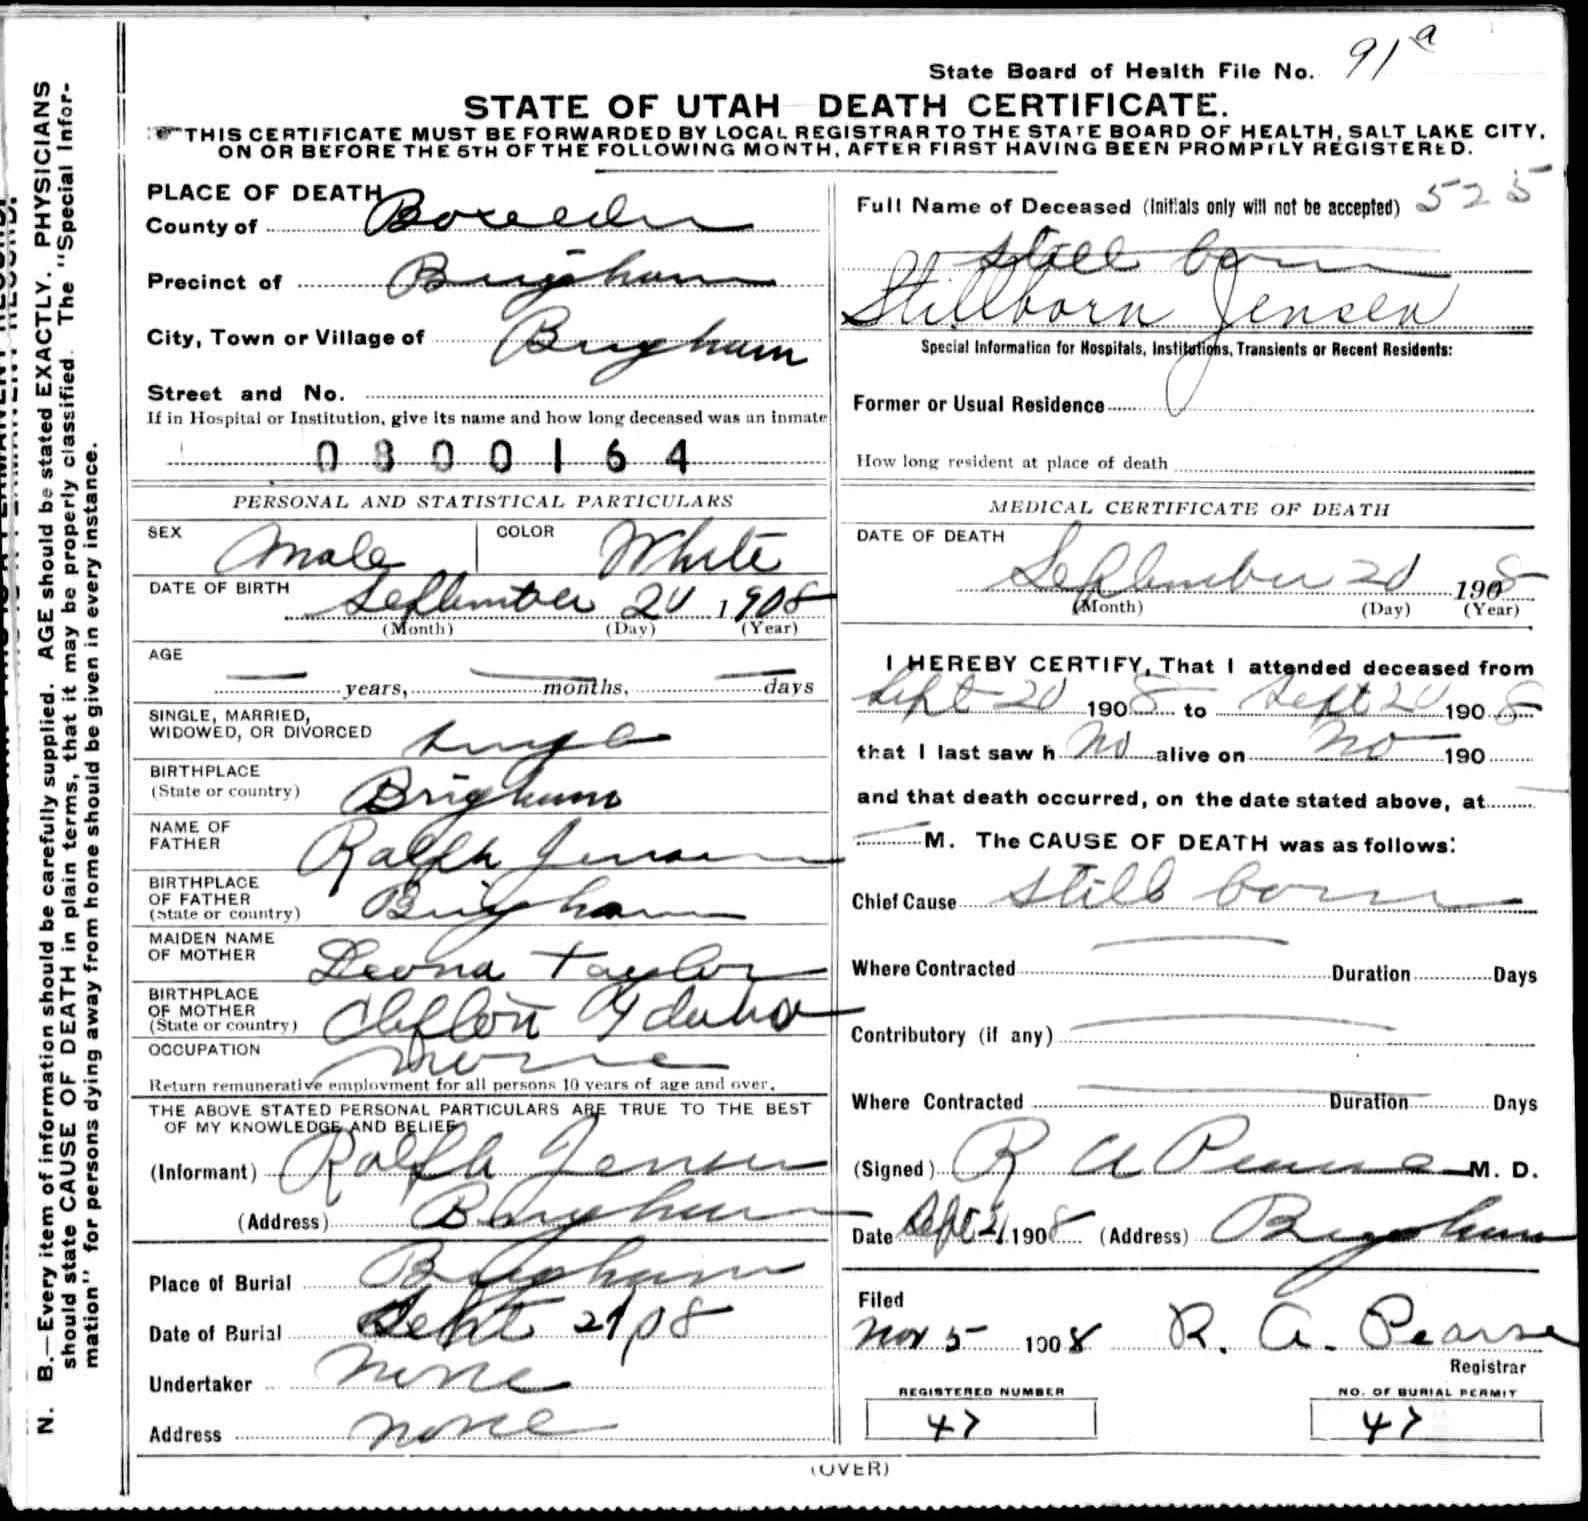 State Board of Health File No. 91a
STATE OF UTAH DEATH CERTIFICATE.
THIS CERTIFICATE MUST BE FORWARDED BY LOCAL REGISTRAR TO THE STATE BOARD OF HEALTH, SALT LAKE CITY,
ON OR BEFORE THE 5TH OF THE FOLLOWING MONTH, AFTER FIRST HAVING BEEN PROMPTLY REGISTERED.
N. B.—Every item of information should be carefully supplied. AGE should be stated EXACTLY. PHYSICIANS
should state CAUSE OF DEATH in plain terms, that it may be properly classified. The "Special Infor-
mation" for persons dying away from home should be given in every instance.
PLACE OF DEATH
County of Boxelder
Precinct of Brigham
City, Town or Village of Brigham
Street and No.
If in Hospital or Institution, give its name and how long deceased was an inmate
0800164
PERSONAL AND STATISTICAL PARTICULARS
SEX Male COLOR White
DATE OF BIRTH September 20 1908
(Month) (Day) (Year)
AGE
years, months, days
SINGLE, MARRIED,
WIDOWED, OR DIVORCED single
BIRTHPLACE
(State or country) Brigham
NAME OF
FATHER Ralph Jensen
BIRTHPLACE
OF FATHER
(State or country) Brigham
MAIDEN NAME
OF MOTHER Leona Taylor
BIRTHPLACE
OF MOTHER
(State or country) Clifton Idaho
OCCUPATION none
Return remunerative employment for all persons 10 years of age and over.
THE ABOVE STATED PERSONAL PARTICULARS ARE TRUE TO THE BEST
OF MY KNOWLEDGE AND BELIEF
(Informant) Ralph Jensen
(Address) Brigham
Place of Burial Brigham
Date of Burial Sept 21 08
Undertaker none
Address none
Full Name of Deceased (Initials only will not be accepted) 525
still born
Stillborn Jensen
Special Information for Hospitals, Institutions, Transients or Recent Residents:
Former or Usual Residence
How long resident at place of death
MEDICAL CERTIFICATE OF DEATH
DATE OF DEATH
September 20 1908
(Month) (Day) (Year)
I HEREBY CERTIFY, That I attended deceased from
Sept 20 1908 to Sept 20 1908
that I last saw h no alive on no 190
and that death occurred, on the date stated above, at
M. The CAUSE OF DEATH was as follows:
Chief Cause still born
Where Contracted Duration Days
Contributory (if any)
Where Contracted Duration Days
(Signed) R A Pearse M. D.
Date Sept 21 1908 (Address) Brigham
Filed
Nov 5 1908 R. A. Pearse
Registrar
REGISTERED NUMBER
47
NO. OF BURIAL PERMIT
47
(OVER)